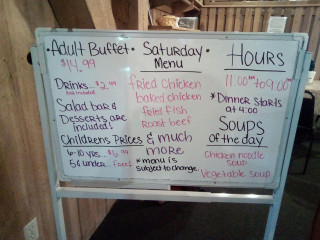 • Adult Buffet •
$14.99
Drinks... $2.49
Not included
Salad bar &
Desserts are
included!
Childrens Prices
6-10 yrs... $6.99
5 & under... Free!
Saturday •
Menu
fried chicken
baked chicken
fried fish
roast beef
& much
more
* menu is
subject to change.
Hours
11:00 AM to 9:00
* Dinner starts
at 4:00
Soups
of the day
Chicken noodle
soup
Vegetable soup